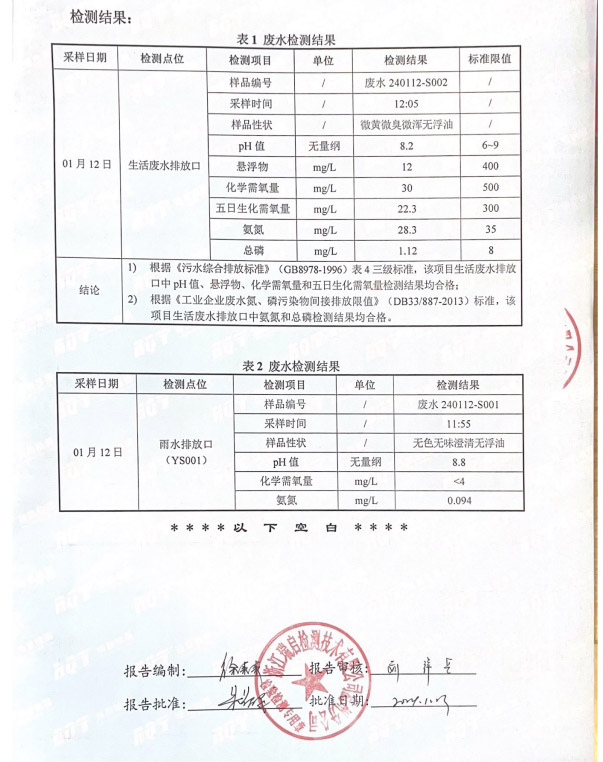 检测结果：
表 1 废水检测结果
采样日期 检测点位 检测项目 单位 检测结果 标准限值
01 月 12 日 生活废水排放口 样品编号 / 废水 240112-S002 /
采样时间 / 12:05 /
样品性状 / 微黄微臭微浑无浮油 /
pH 值 无量纲 8.2 6~9
悬浮物 mg/L 12 400
化学需氧量 mg/L 30 500
五日生化需氧量 mg/L 22.3 300
氨氮 mg/L 28.3 35
总磷 mg/L 1.12 8
结论 1) 根据《污水综合排放标准》（GB8978-1996）表 4 三级标准，该项目生活废水排放
口中 pH 值、悬浮物、化学需氧量和五日生化需氧量检测结果均合格；
2) 根据《工业企业废水氮、磷污染物间接排放限值》（DB33/887-2013）标准，该
项目生活废水排放口中氨氮和总磷检测结果均合格。
表 2 废水检测结果
采样日期 检测点位 检测项目 单位 检测结果
01 月 12 日 雨水排放口 样品编号 / 废水 240112-S001
（YS001） 采样时间 / 11:55
样品性状 / 无色无味澄清无浮油
pH 值 无量纲 8.8
化学需氧量 mg/L <4
氨氮 mg/L 0.094
＊＊＊＊以 下 空 白＊＊＊＊
报告编制： 报告审核：
报告批准： 批准日期：
浙江瑞启检测技术有限公司